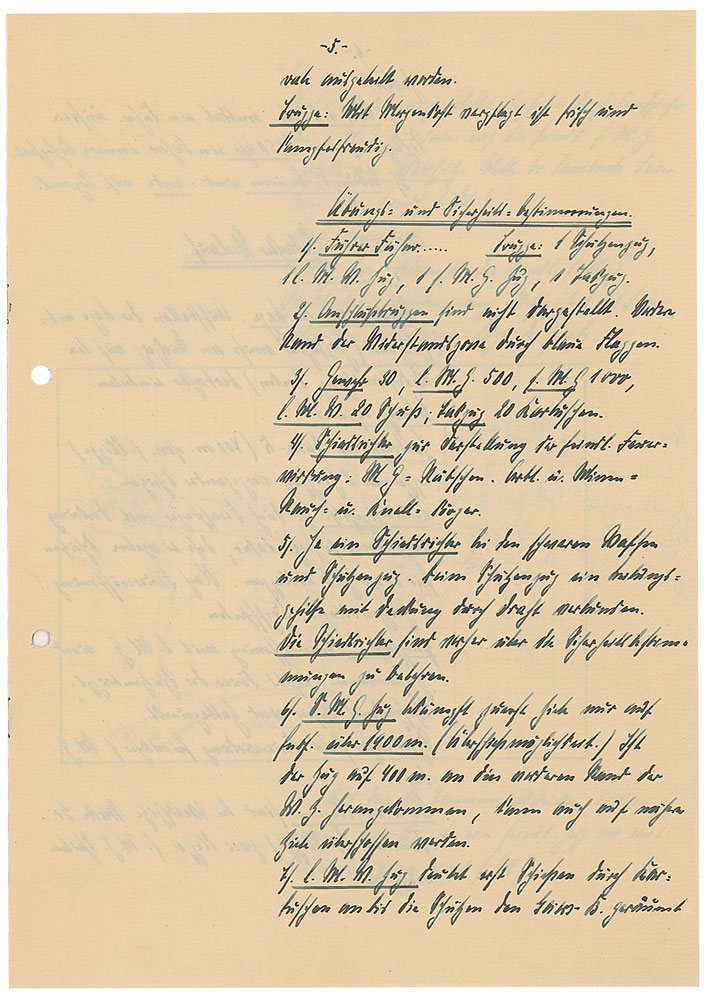 -5.-
ausgeteilt werden.
Truppe: Mit Morgenkost verpflegt ist frisch und
kampfesfreudig.
Übungs- und Sicherheits-bestimmungen.
1). Führer Führer..... Truppe: 1 Schützenzug,
1 l. M. W. Zug, 1 s. M. G. Zug, 1 Takzug.
2). Anschlußtruppen sind nicht dargestellt. Vorderer
Rand der Widerstandszone durch blaue Flaggen.
3). Gewehr 30, l. M. G. 500, s. M. G. 1000,
l. M. W. 20 Schuß; Takzug 20 Kartuschen.
4). Schiedsrichter zur Darstellung der feindl. Feuer-
wirkung: M. G. = Rätschen. Artl. u. Minen =
Rauch- u. Knall- Körper.
5). Je ein Schiedsrichter bei den schweren Waffen
und Schützenzug. Beim Schützenzug ein
gehilfe mit Deckung durch Draht verbunden.
Die Schiedsrichter sind vorher über die Sicherheitsbestim-
mungen zu belehren.
6). S. M. G. Zug bekämpft zuerst Ziele nur auf
Entf. über 1400 m. (Überschießmöglichkeit.) Ist
der Zug auf 400 m. an den vorderen Rand der
W. Z. herangekommen, kann auch auf nähere
Ziele überschossen werden.
7). l. M. W. Zug deutet erst Schießen durch Kar-
tuschen an bis die Schützen den K. geräumt